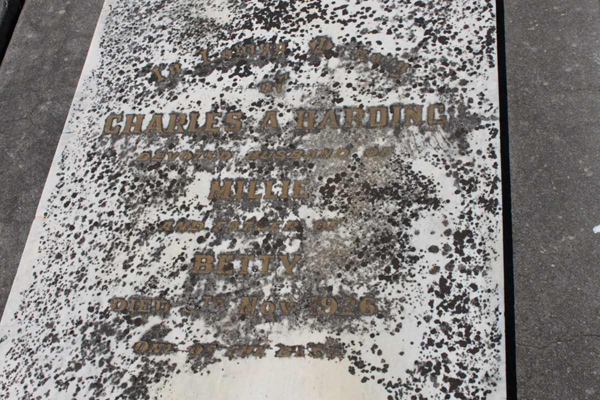 In Loving Memory
of
CHARLES A. HARDING
DEVOTED HUSBAND OF
MILLIE
AND FATHER OF
BETTY
DIED Nov. 1926
ONE OF THE BEST